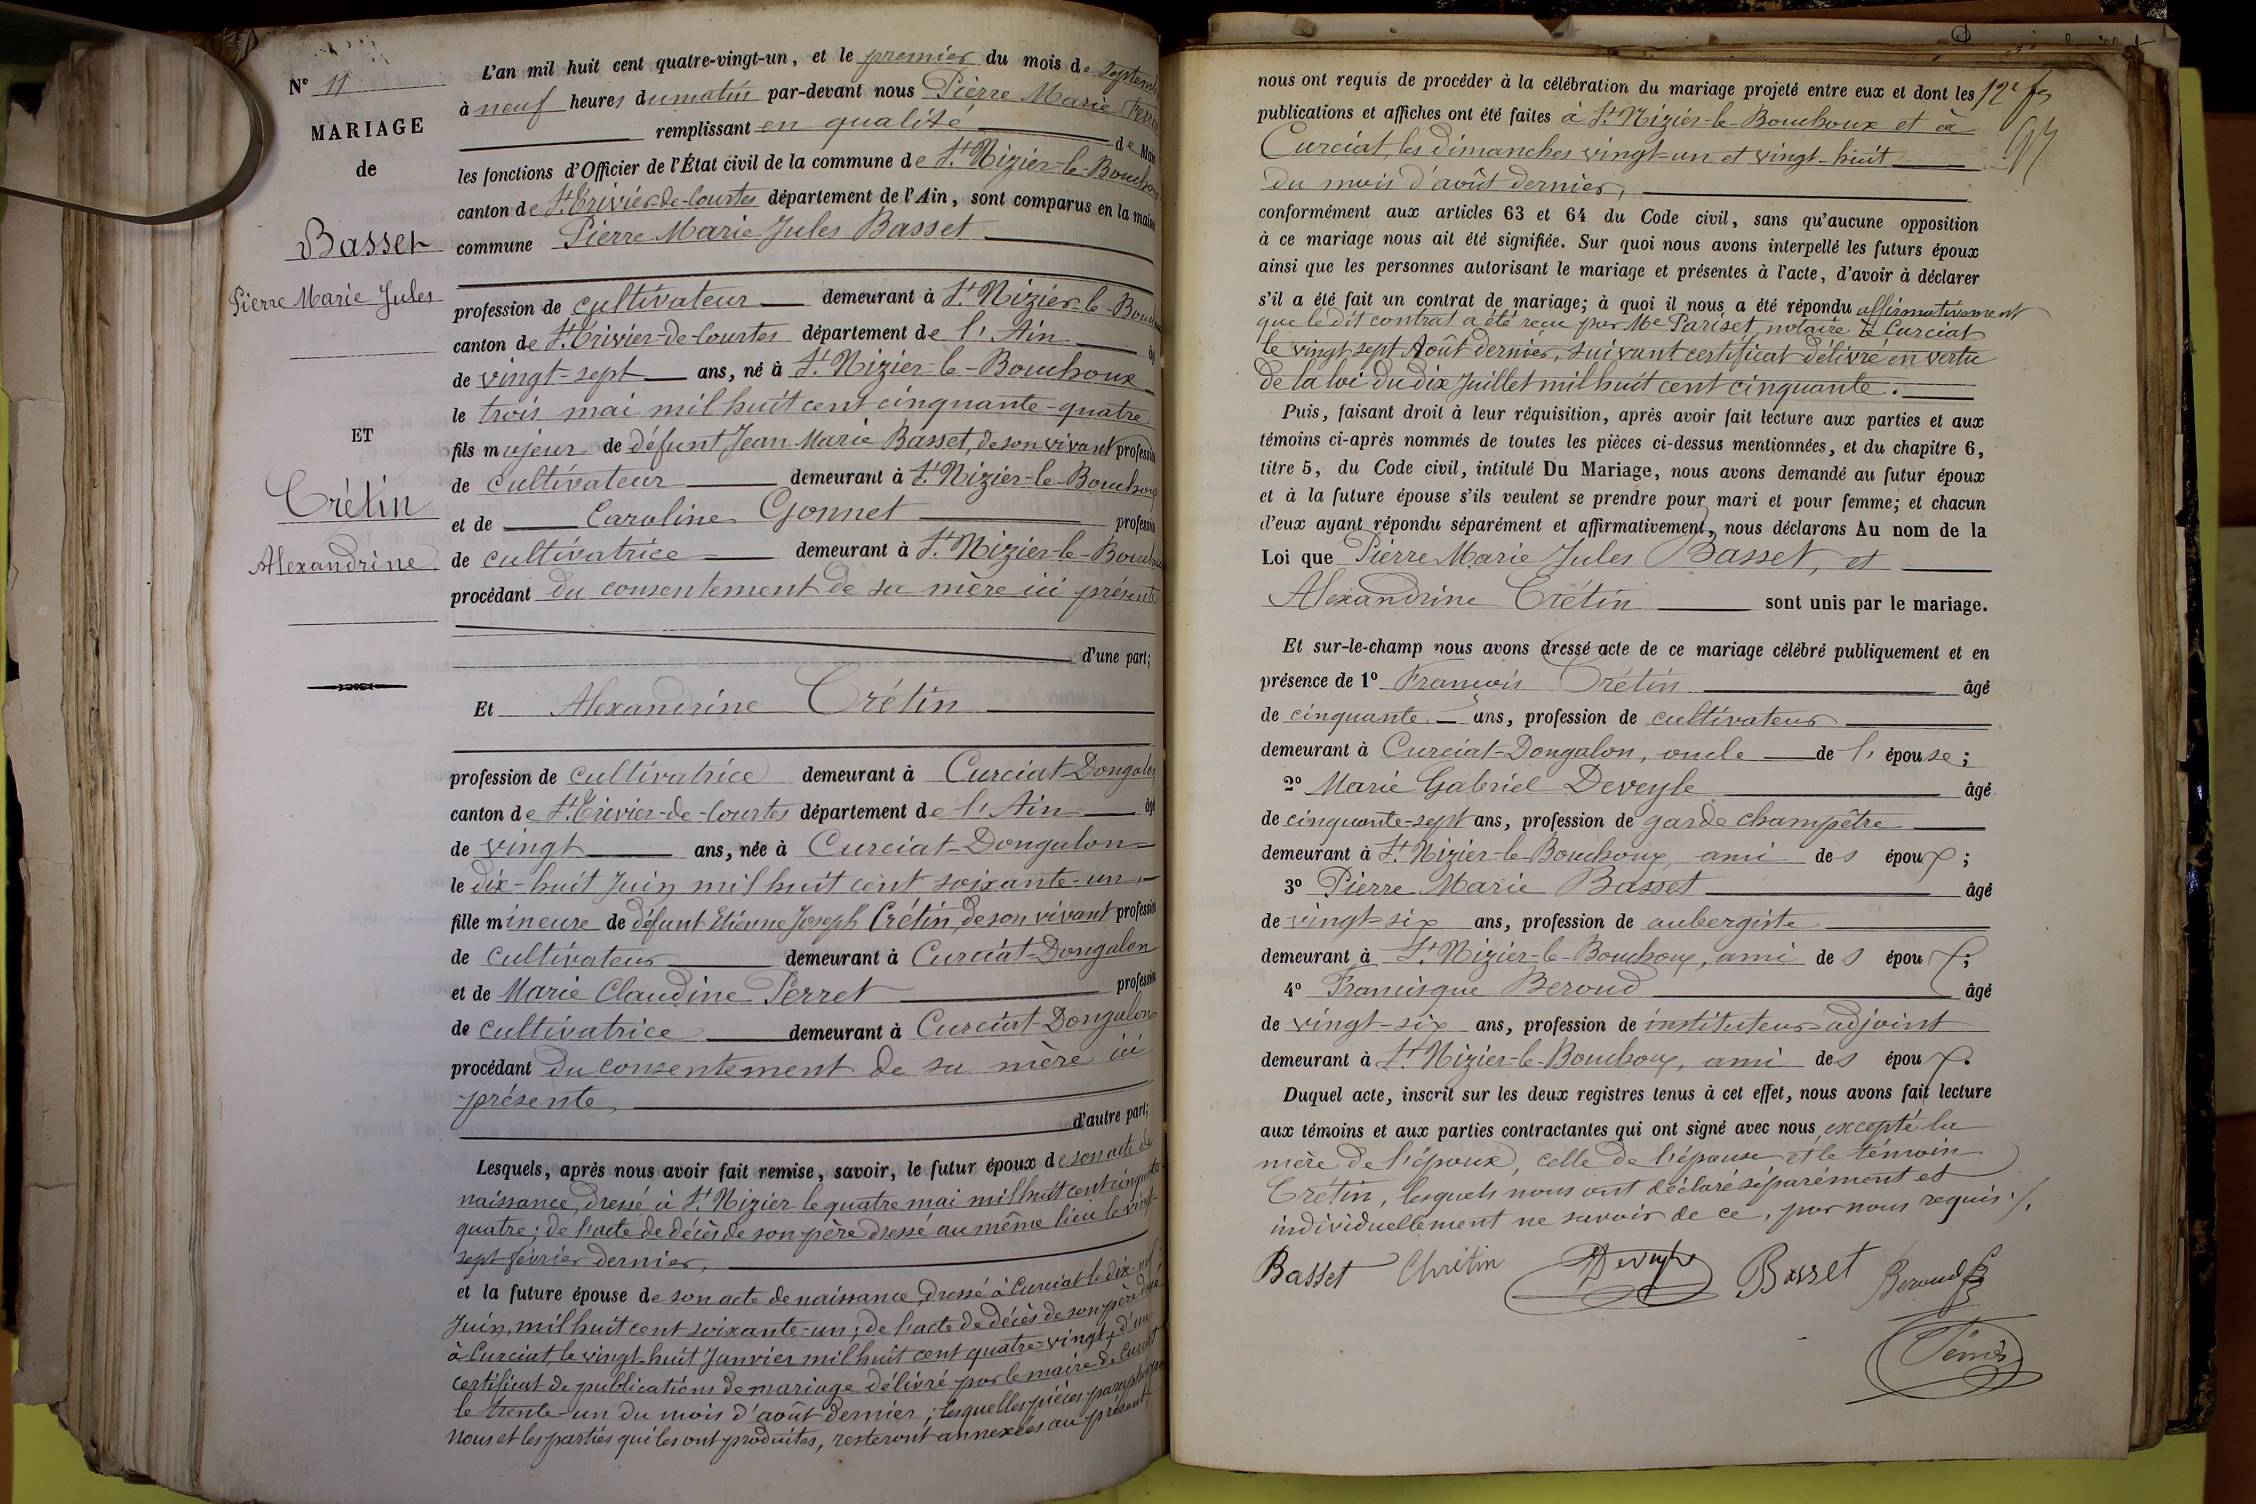 N° 11
MARIAGE
de
Basset
Pierre Marie Jules
ET
Crétin
Alexandrine
L'an mil huit cent quatre-vingt-un, et le premier du mois de septemb
à neuf heures du matin par-devant nous Pierre Marie
remplissant en qualité de Mai
les fonctions d'Officier de l'État civil de la commune de St Nizier-le-Bouchoux
canton de St Trivier-de-Courtes département de l'Ain, sont comparus en la mais
commune Pierre Marie Jules Basset
profession de cultivateur demeurant à St Nizier-le-Bouch
canton de St Trivier-de-Courtes département de l'Ain âg
de vingt-sept ans, né à St Nizier-le-Bouchoux
le trois mai mil huit cent cinquante-quatre
fils majeur de défunt Jean Marie Basset, de son vivant profession
de cultivateur demeurant à St Nizier-le-Bouchoux
et de Caroline Gonnet profession
de cultivatrice demeurant à St Nizier-le-Bouchou
procédant du consentement de sa mère ici présente
d'une part;
Et Alexandrine Crétin
profession de cultivatrice demeurant à Curciat-Dongalon
canton de St Trivier-de-Courtes département de l'Ain âgé
de vingt ans, née à Curciat-Dongalon
le dix-huit Juin mil huit cent soixante-un,
fille mineure de défunt Etienne Joseph Crétin, de son vivant profession
de cultivateur demeurant à Curciat-Dongalon
et de Marie Claudine Perret profession
de cultivatrice demeurant à Curciat-Dongalon
procédant du consentement de sa mère ici
présente,
d'autre part;
Lesquels, après nous avoir fait remise, savoir, le futur époux de son acte de
naissance, dressé à St Nizier le quatre mai mil huit cent cinquante-
quatre; de l'acte de décès de son père dressé au même lieu le vingt-
sept février dernier,
et la future épouse de son acte de naissance, dressé à Curciat le dix-neuf
Juin, mil huit cent soixante-un; de l'acte de décès de son père dressé
à Curciat, le vingt-huit Janvier mil huit cent quatre-vingt; d'un
certificat de publications de mariage délivré par le maire de Curciat
le trente-un du mois d'août dernier; lesquelles pièces paraphées par
nous et les parties qui les ont produites, resteront annexées au présent,
12e fs
nous ont requis de procéder à la célébration du mariage projeté entre eux et dont les
publications et affiches ont été faites à St Nizier-le-Bouchoux et à
Curciat, les dimanches vingt-un et vingt-huit
du mois d'août dernier,
conformément aux articles 63 et 64 du Code civil, sans qu'aucune opposition
à ce mariage nous ait été signifiée. Sur quoi nous avons interpellé les futurs époux
ainsi que les personnes autorisant le mariage et présentes à l'acte, d'avoir à déclarer
s'il a été fait un contrat de mariage; à quoi il nous a été répondu affirmativement
que le dit contrat a été reçu par Me Pariset, notaire à Curciat
le vingt-sept Août dernier, suivant certificat délivré en vertu
de la loi du dix Juillet mil huit cent cinquante.
Puis, faisant droit à leur réquisition, après avoir fait lecture aux parties et aux
témoins ci-après nommés de toutes les pièces ci-dessus mentionnées, et du chapitre 6,
titre 5, du Code civil, intitulé Du Mariage, nous avons demandé au futur époux
et à la future épouse s'ils veulent se prendre pour mari et pour femme; et chacun
d'eux ayant répondu séparément et affirmativement, nous déclarons Au nom de la
Loi que Pierre Marie Jules Basset, et
Alexandrine Crétin sont unis par le mariage.
Et sur-le-champ nous avons dressé acte de ce mariage célébré publiquement et en
présence de 1° François Crétin âgé
de cinquante ans, profession de cultivateur
demeurant à Curciat-Dongalon, oncle de l'épouse;
2° Marie Gabriel Deveyle âgé
de cinquante-sept ans, profession de garde champêtre
demeurant à St Nizier-le-Bouchoux, ami des époux;
3° Pierre Marie Basset âgé
de vingt-six ans, profession de aubergiste
demeurant à St Nizier-le-Bouchoux, ami des époux;
4° Francisque Beroud âgé
de vingt-six ans, profession de instituteur-adjoint
demeurant à St Nizier-le-Bouchoux, ami des époux.
Duquel acte, inscrit sur les deux registres tenus à cet effet, nous avons fait lecture
aux témoins et aux parties contractantes qui ont signé avec nous, excepté la
mère de l'époux, celle de l'épouse et le témoin
Crétin, lesquels nous ont déclaré séparément et
individuellement ne savoir de ce, par nous requis ./.
Basset Chrétin Deveyle Basset Beroud